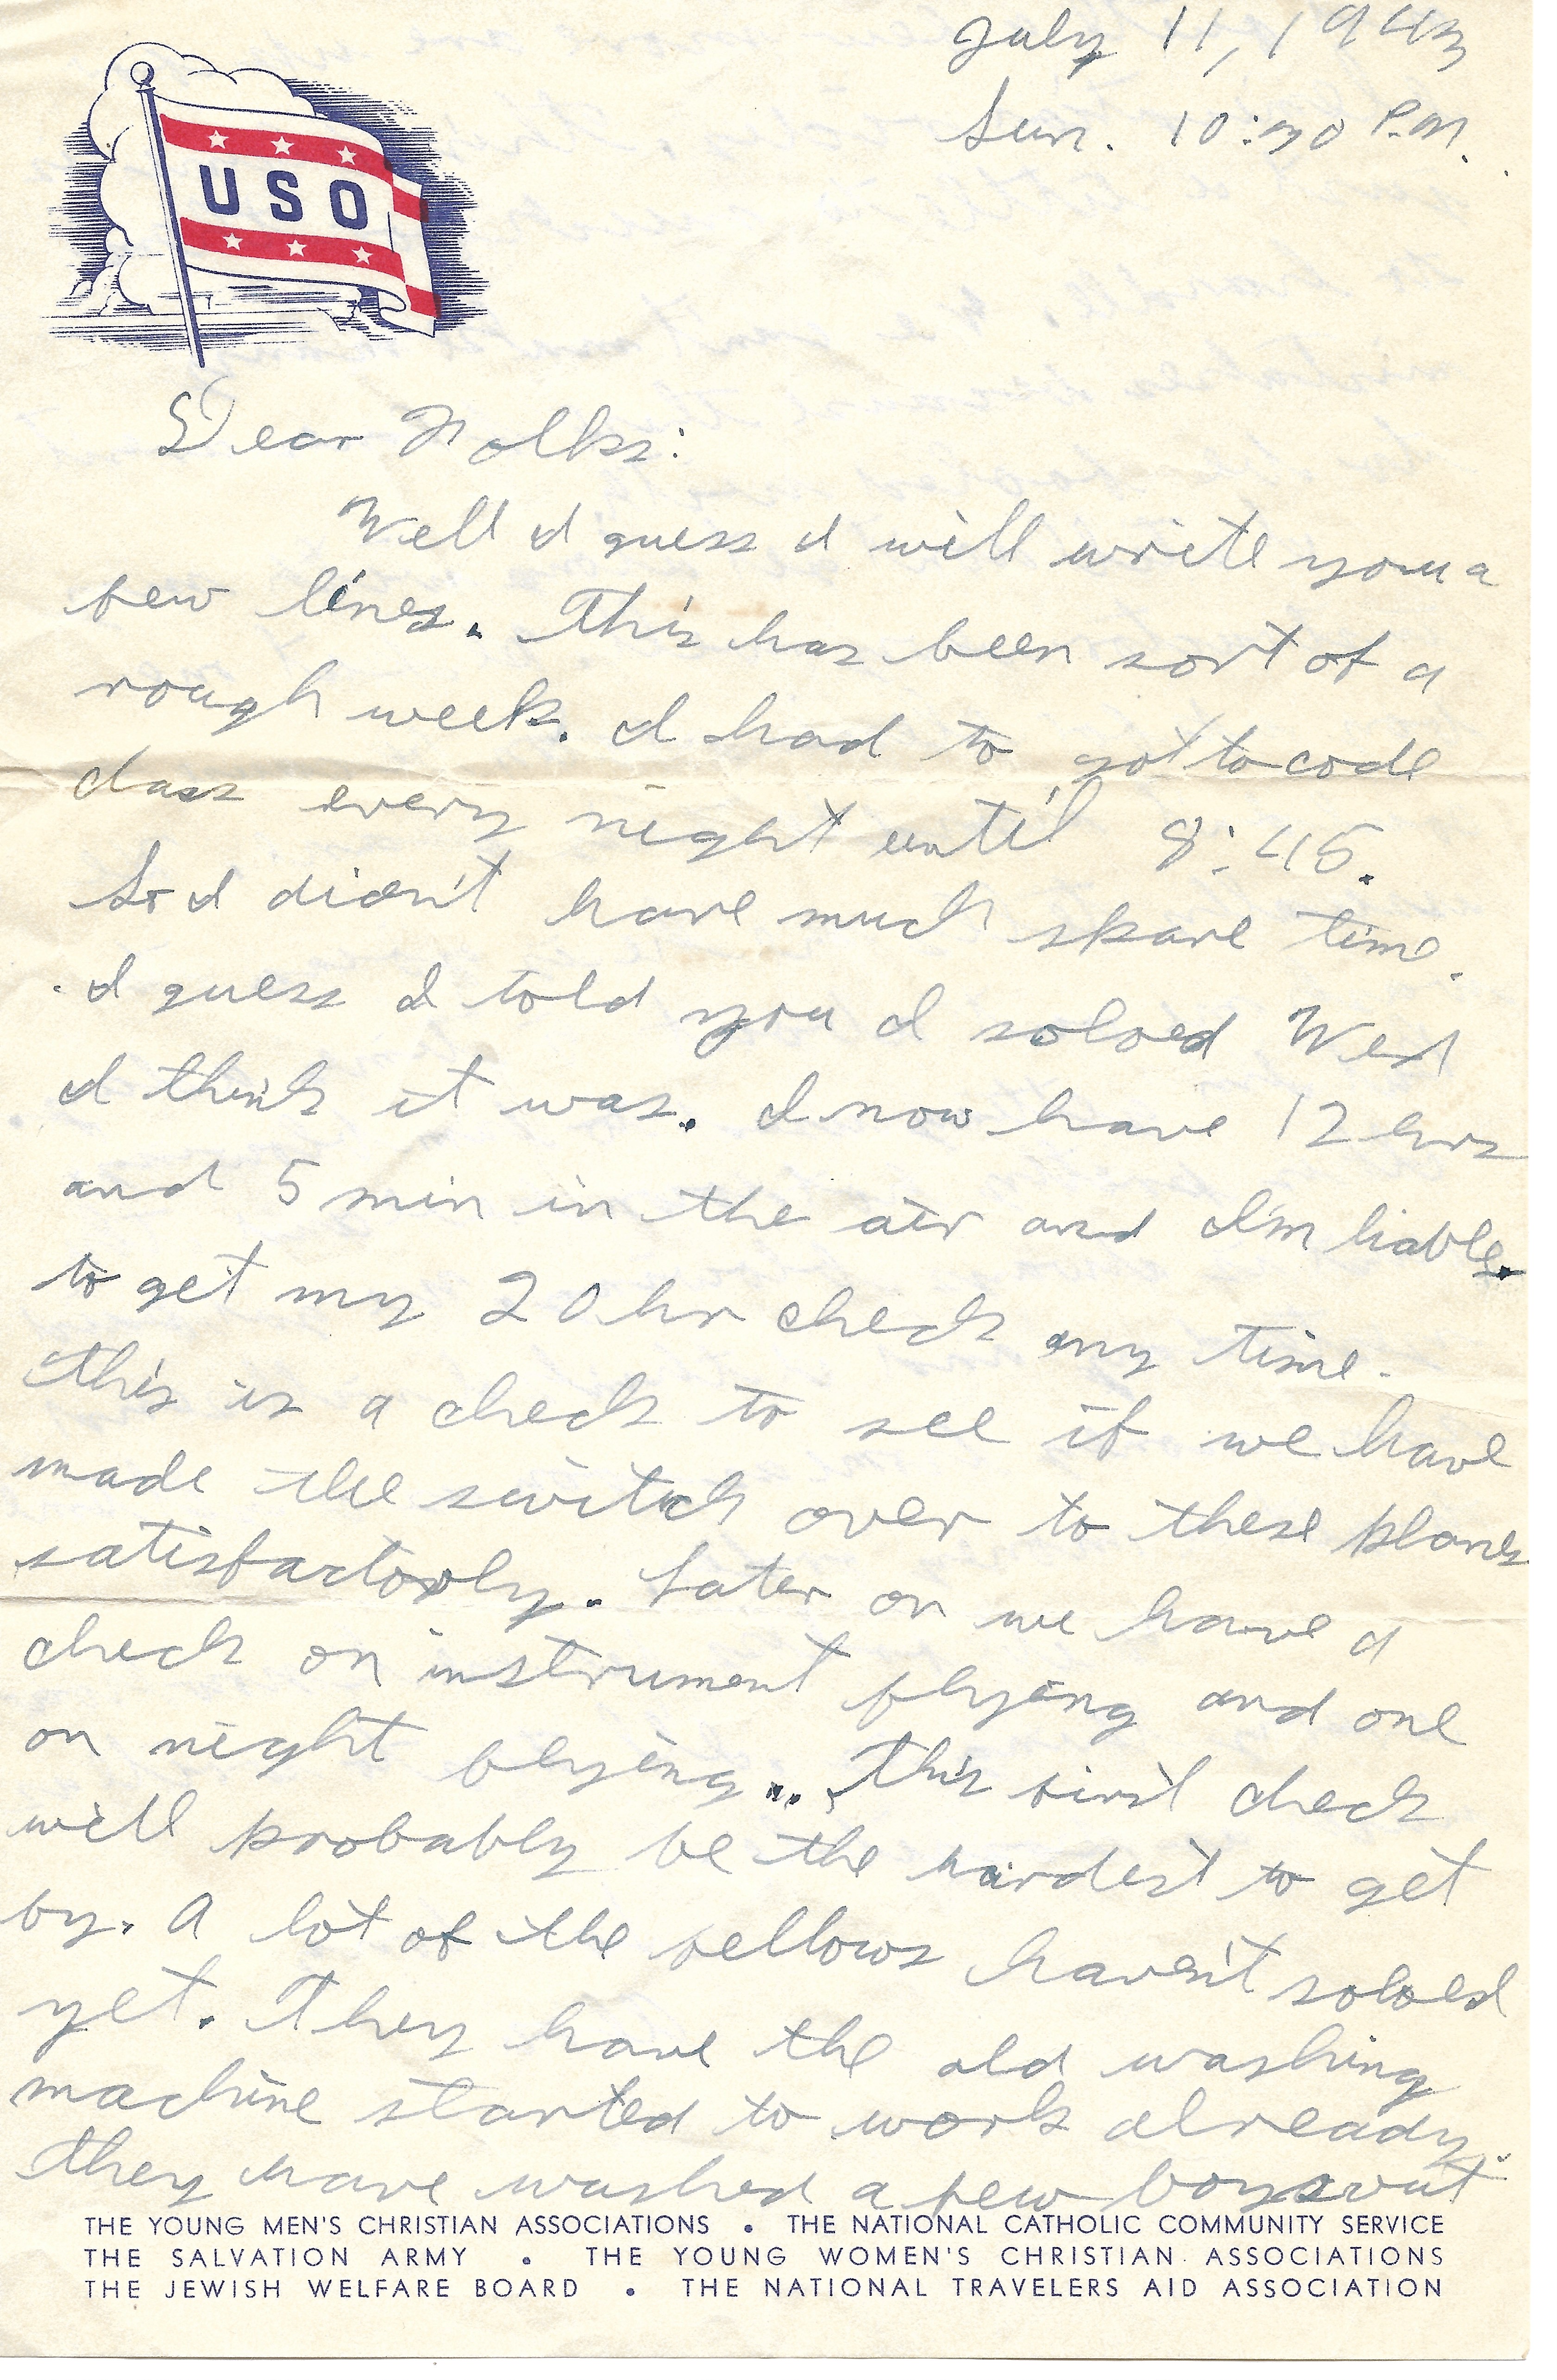 July 11, 1943
Sun. 10:30 P.M.
USO
Dear Folks:
Well I guess I will write you a
few lines. This has been sort of a
rough week. I had to go to code
class every night until 8:45.
So I didn't have much spare time.
I guess I told you I soloed Wed
I think it was. I now have 12 hrs
and 5 min in the air and I'm liable
to get my 20 hr check any time.
this is a check to see if we have
made the switch over to these planes
satisfactorly. Later on we have a
check on instrument flying and one
on night flying.. This first check
will probably be the hardest to get
by. A lot of the fellows haven't soloed
yet. They have the old washing
machine started to work already.
they have washed a few boys out
THE YOUNG MEN'S CHRISTIAN ASSOCIATIONS • THE NATIONAL CATHOLIC COMMUNITY SERVICE
THE SALVATION ARMY • THE YOUNG WOMEN'S CHRISTIAN ASSOCIATIONS
THE JEWISH WELFARE BOARD • THE NATIONAL TRAVELERS AID ASSOCIATION